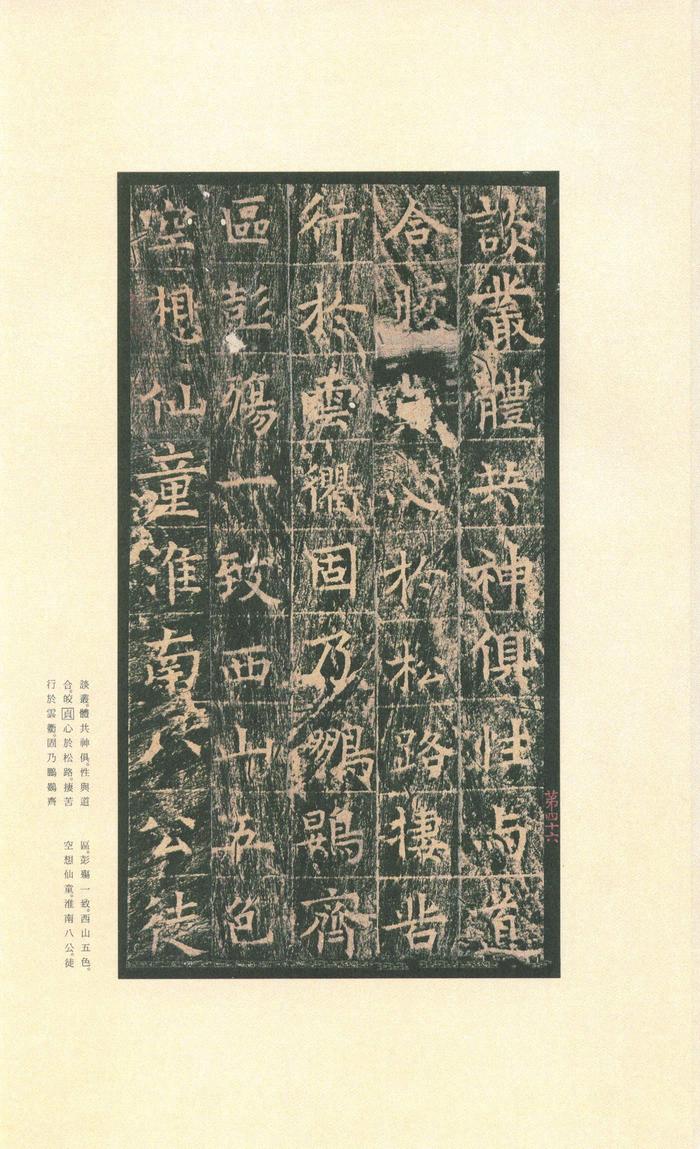 第四十六
談叢體共神俱性与道
合皎心扵松路捿苦
行扵雲衢固乃鵬鷃齊
區彭殤一致西山五色
空想仙童淮南八公徒
談叢。體共神俱。性與道
合。皎貞心於松路。捿苦
行於雲衢。固乃鵬鷃齊
區。彭殤一致。西山五色。
空想仙童。淮南八公。徒